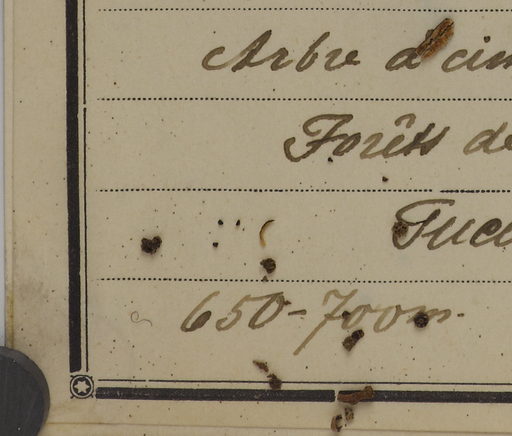 Arbre à cim
Forêts de
Tucu
650-700m.